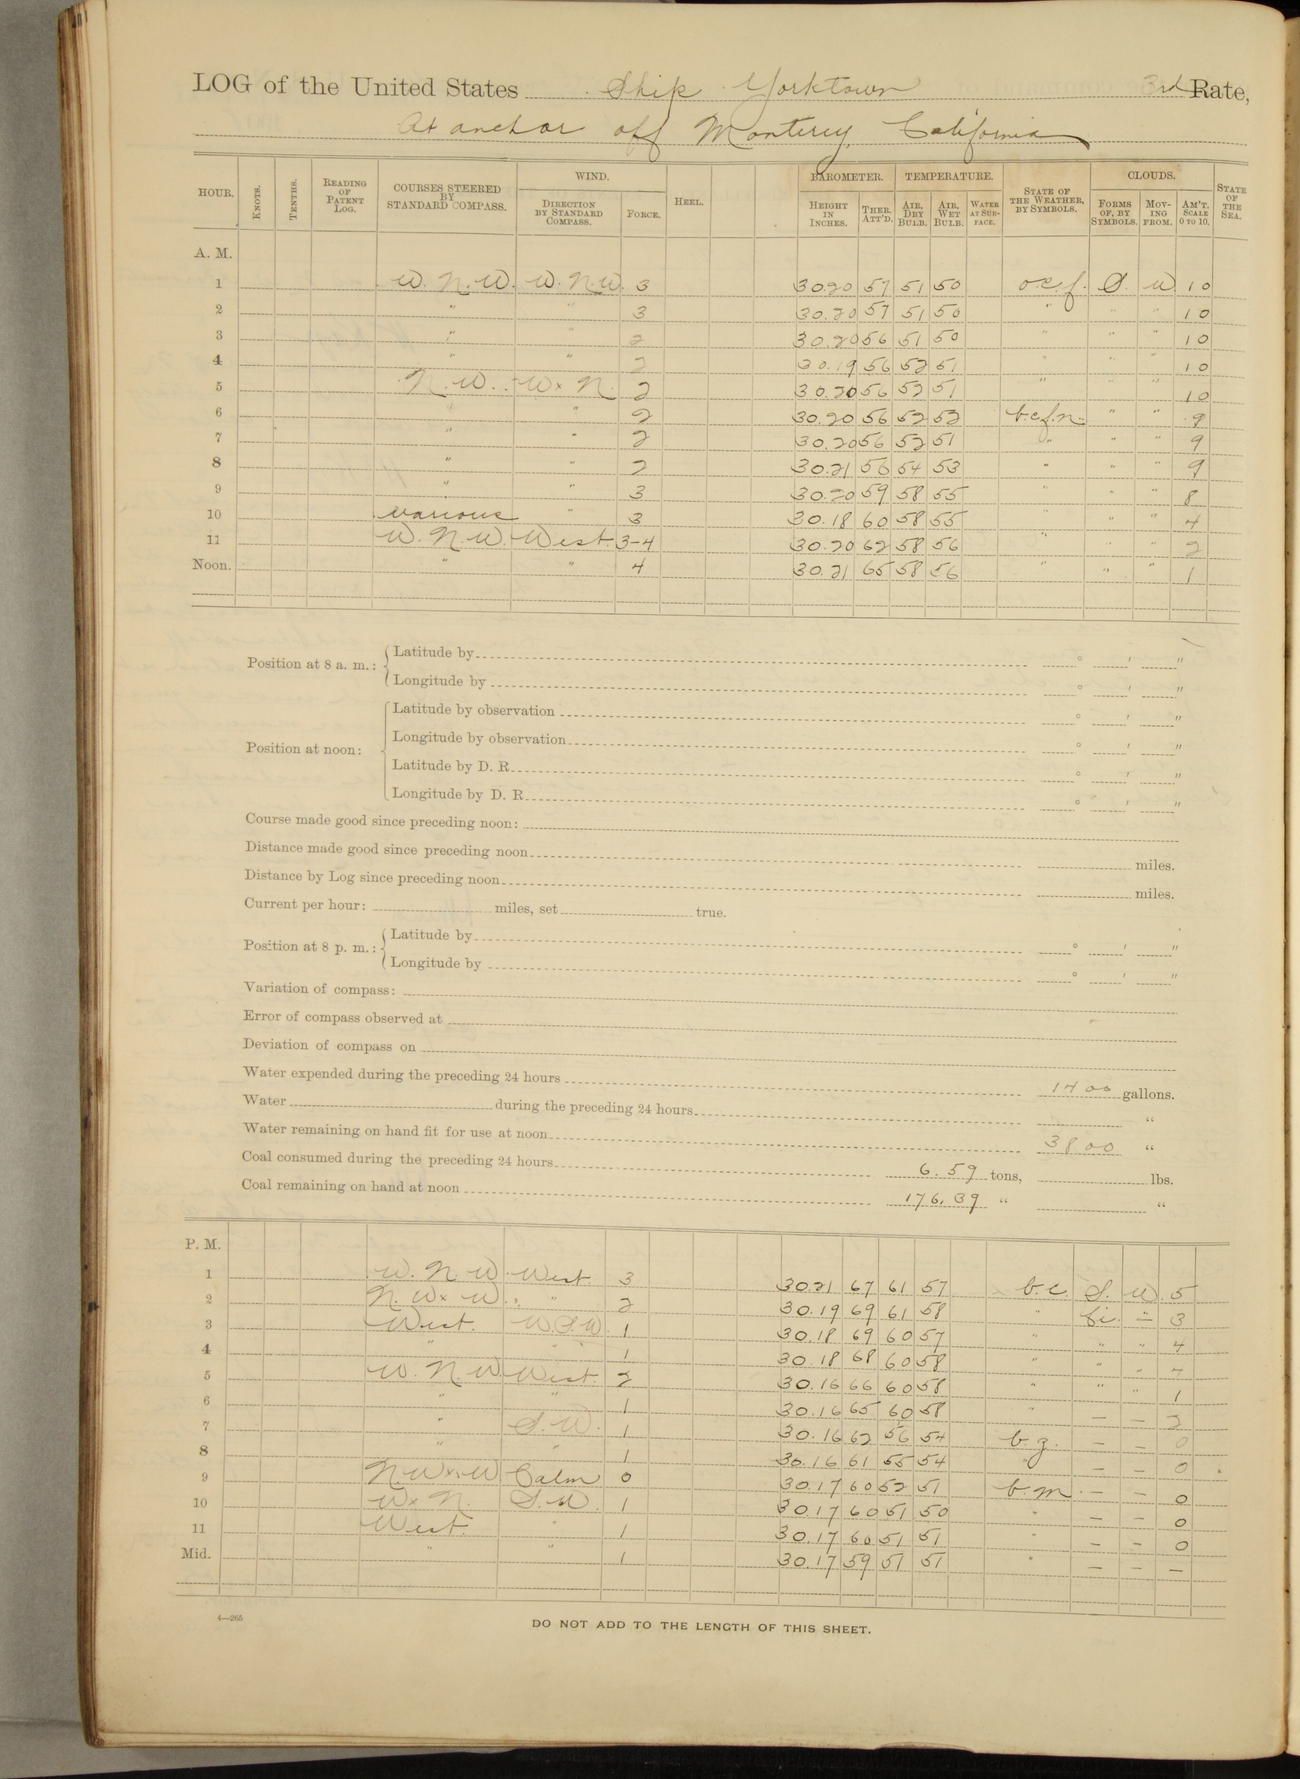 LOG of the United States Ship Yorktown 3rd Rate,
At anchor off Monterey, California
HOUR. KNOTS. TENTHS. READING OF PATENT LOG. COURSES STEERED BY STANDARD COMPASS. WIND. DIRECTION BY STANDARD COMPASS. FORCE. HEEL. BAROMETER. HEIGHT IN INCHES. THER. ATT'D. TEMPERATURE. AIR, DRY BULB. AIR, WET BULB. WATER AT SURFACE. STATE OF THE WEATHER, BY SYMBOLS. CLOUDS. FORMS OF, BY SYMBOLS. MOVING FROM. AM'T. SCALE 0 TO 10. STATE OF THE SEA.
A. M.
1 W. N. W. W. N. W. 3 30.20 57 51 50 o.c.f. S. W 10
2 " " 3 30.20 57 51 50 " " " 10
3 " " 2 30.20 56 51 50 " " " 10
4 " " 2 30.19 56 52 51 " " " 10
5 N. W. W x N. 2 30.20 56 52 51 " " " 10
6 " " 2 30.20 56 52 52 b.c.f.m. " " 9
7 " " 2 30.20 56 52 51 " " " 9
8 " " 2 30.21 56 54 53 " " " 9
9 " " 3 30.20 59 58 55 " " " 8
10 various " 3 30.18 60 58 55 " " " 4
11 W. N. W. West. 3-4 30.20 62 58 56 " " " 2
Noon. " " 4 30.21 65 58 56 " " " 1
Position at 8 a. m.: Latitude by ° ' "
Longitude by ° ' "
Latitude by observation ° ' "
Position at noon: Longitude by observation ° ' "
Latitude by D. R. ° ' "
Longitude by D. R. ° ' "
Course made good since preceding noon:
Distance made good since preceding noon miles.
Distance by Log since preceding noon miles.
Current per hour: miles, set true.
Position at 8 p. m.: Latitude by ° ' "
Longitude by ° ' "
Variation of compass:
Error of compass observed at
Deviation of compass on
Water expended during the preceding 24 hours 1400 gallons.
Water during the preceding 24 hours "
Water remaining on hand fit for use at noon 3800 "
Coal consumed during the preceding 24 hours 6.59 tons, lbs.
Coal remaining on hand at noon 176.39 " "
P. M.
1 W. N. W West. 3 30.21 67 61 57 b.c. S. W. 5
2 N. W x W. " 2 30.19 69 61 58 " Ci. " 3
3 West. W.S.W 1 30.18 69 60 57 " " " 4
4 " " 1 30.18 68 60 58 " " "
5 W. N. W West. 2 30.16 66 60 58 " " " 1
6 " " 1 30.16 65 60 58 " — — 2
7 " S. W. 1 30.16 62 56 54 b.z. — — 0
8 " " 1 30.16 61 55 54 " — — 0
9 N W x W Calm 0 30.17 60 52 51 b.m. — — 0
10 W x N. S. W. 1 30.17 60 51 50 " — — 0
11 West. " 1 30.17 60 51 51 " — — 0
Mid. " " 1 30.17 59 51 51 " — — —
4—265
DO NOT ADD TO THE LENGTH OF THIS SHEET.